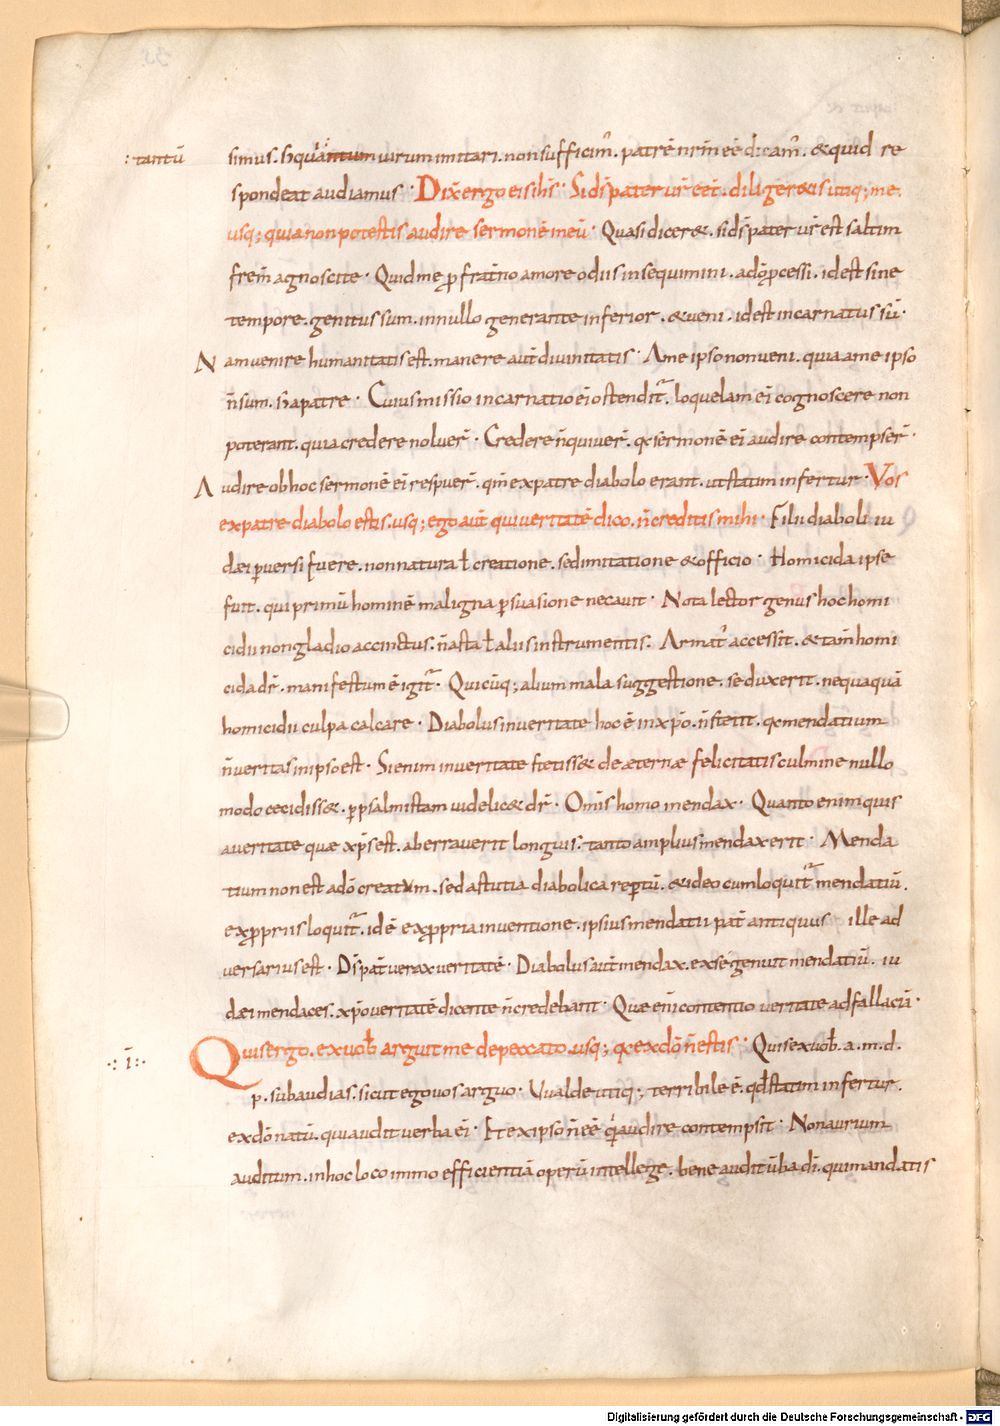 : tantū
simus. s; quantum uirum imitari. non sufficim̄. patrē nr̄m eē dicam̄. & quid re
spondeat audiamus· Dix̄ ergo eis ih̄s· Si ds̄ pater ur̄ eēt. diligeretis utiq; me.
usq; quia non potestis audire sermonē meū· Quasi diceret. si ds̄ pater ur̄ est saltim
frem̄ agnoscite· Quid me p frat̄no amore odiis insequimini. a dō pcessi. id est sine
tempore. genitus sum. in nullo generante inferior. & ueni. id est incarnatus sū·
Nam uenire humanitatis est. manere aut̄ diuinitatis· A me ipso non ueni. quia a me ipso
n̄ sum. s; a patre· Cuius missio incarnatio ei ostendit̄. loquelam ei cognoscere non
poterant. quia credere noluer̄· Credere n̄ quiuer̄. qa sermonē ei audire contempser̄·
Audire ob hoc sermonē ei respuer̄. qm̄ ex patre diabolo erant. ut statim infertur· Vos
ex patre diabolo estis. usq; ego aut̄ qui ueritatē dico. n̄ creditis mihi· Filii diaboli iu
dæi puersi fuere. non natural̄ creatione. sed imitatione & officio· Homicida ipse
fuit. qui primū hominē maligna psuasione necauit· Nota lector genus hoc homi
cidii non gladio accinctus. n̄ asta l̄ aliis instrumentis. Armat᾽ accessit. & tam̄ homi
cida dr̄. manifestum ē igit̄· Quicūq; alium mala suggestione. seduxerit. nequaquā
homicidii culpa calcare· Diabolus in ueritate hoc ē in xp̄o. n̄ stetit. qa mendatium
n̄ ueritas in ipso est· Si enim in ueritate stetisset de æternæ felicitatis culmine nullo
modo cecidisset. p psalmistam uidelicet dr̄· Omis homo mendax· Quanto enim quis
a ueritate quæ xp̄s est. aberrauerit longius: tanto amplius mendax erit· Menda
tium non est a dō creatum. sed astutia diabolica reptū. & ideo cum loquit̄ mendatiū.
ex ppriis loquit̄. id ē ex ppria inuentione. ipsius mendatii pat̄ antiquus ille ad
uersarius est· Ds̄ pat̄ uerax ueritatē· Diabolus aut̄ mendax. ex se genuit mendatiū. iu
dæi mendaces. xp̄o ueritatē dicente n̄ credebant· Quæ eni contentio ueritate ad fallaciā·
·:· ī:·
Quis ergo. ex uob̄ arguit me de peccato. usq; qa ex dō n̄ estis· Quis ex uob̄. a. m. d.
p. subaudias. sicut ego uos arguo· Valde utiq; terribile ē. qd̄ statim infertur.
ex dō natū. qui audit uerba ei· Et ex ipso n̄ eē q̄ audire contempsit· Non aurium
auditum. in hoc loco immo efficientiā operū intellege. bene audit ūba dī. qui mandatis